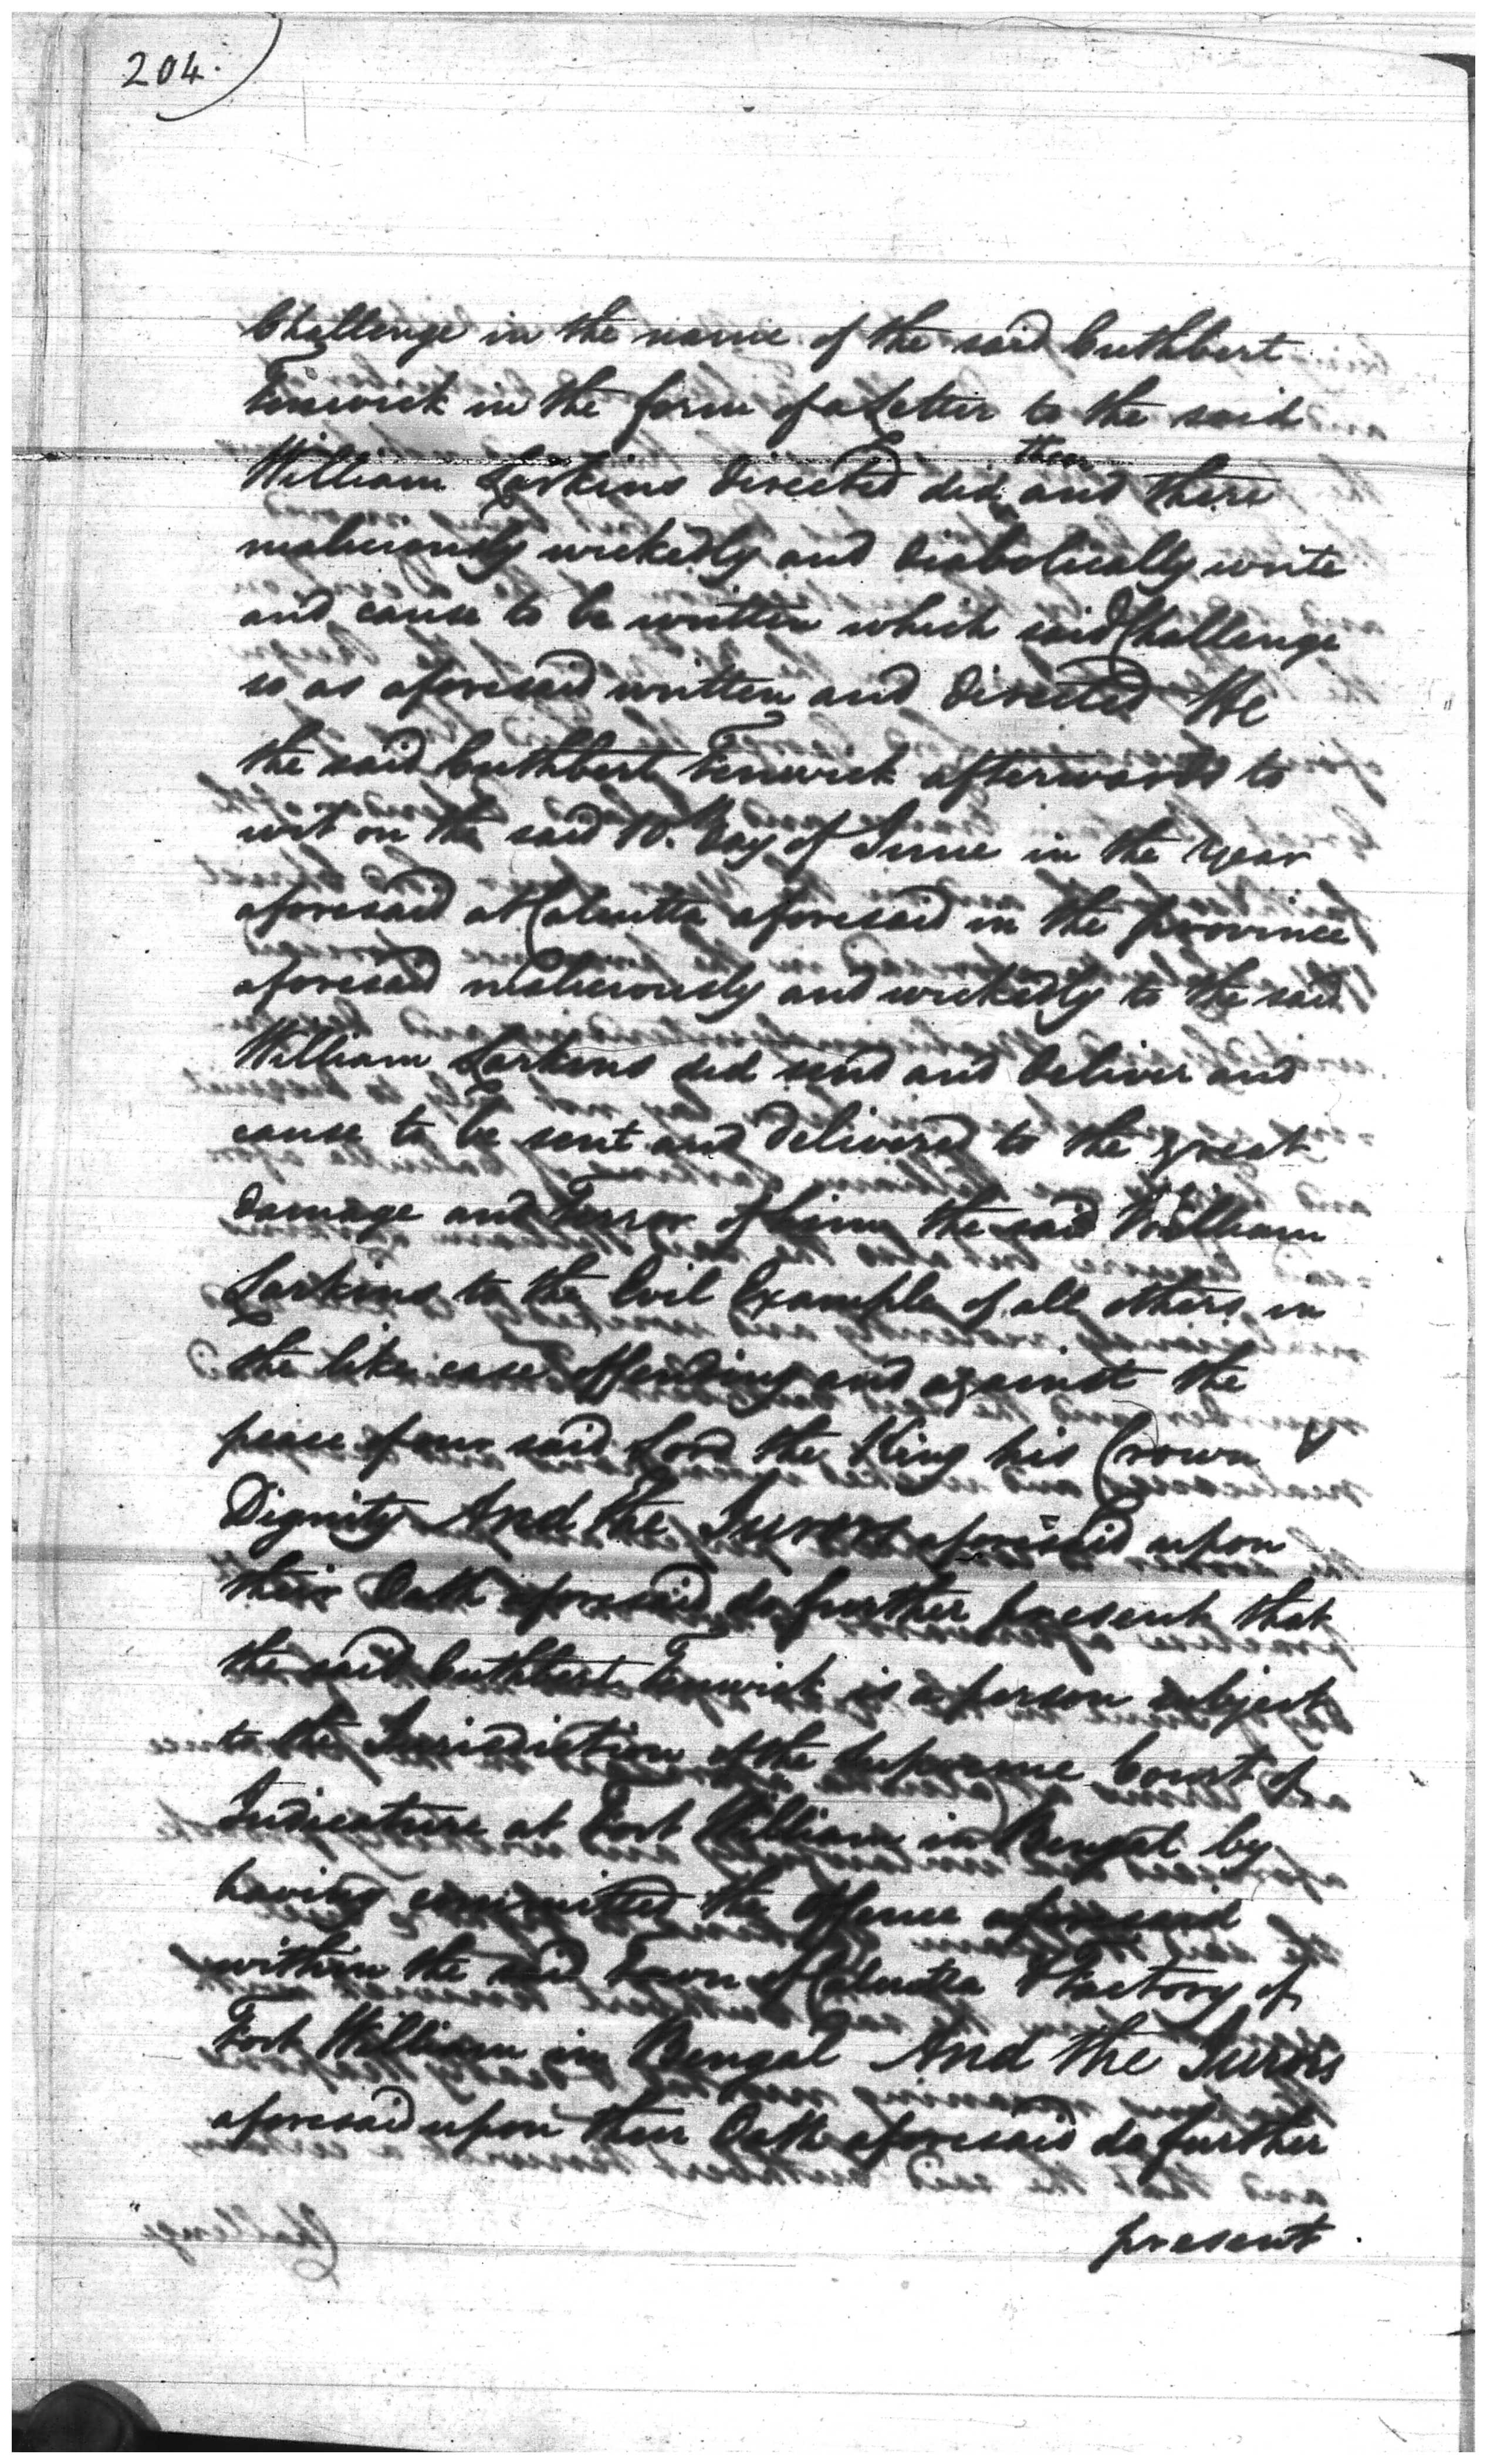 204.
Challenge in the name of the said Cuthbert
Fenwick in the form of a Letter to the said
William Larkins directed did then and there
maliciously wickedly and diabolically write
and cause to be written which said Challenge
so as aforesaid written and directed He
the said Cuthbert Fenwick afterwards to
wit on the said 10th Day of June in the Year
aforesaid at Calcutta aforesaid in the province
aforesaid maliciously and wickedly to the said
William Larkins did send and deliver and
cause to be sent and delivered to the great
damage and Terror of him the said William
Larkins to the Evil Example of all others in
the like case offending and against the
peace of our said Lord the King his Crown &
Dignity And the Jurors aforesaid upon
their Oath aforesaid do further present that
the said Cuthbert Fenwick is a person subject
to the Jurisdiction of the Supreme Court of
Judicature at Fort William in Bengal by
having committed the Offence aforesaid
within the said Town of Calcutta & Factory of
Fort William in Bengal And the Jurors
aforesaid upon their Oath aforesaid do further
present